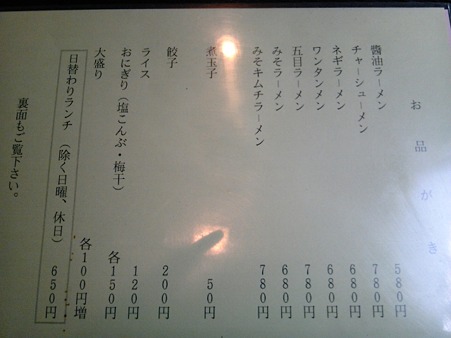 お品がき
醤油ラーメン 580円
チャーシューメン 780円
ネギラーメン 680円
ワンタンメン 680円
五目ラーメン 780円
みそラーメン 680円
みそキムチラーメン 780円
煮玉子 50円
餃子 200円
ライス 120円
おにぎり（塩こんぶ・梅干） 各150円
大盛り 各100円増
日替わりランチ（除く日曜、休日） 650円
裏面もご覧下さい。